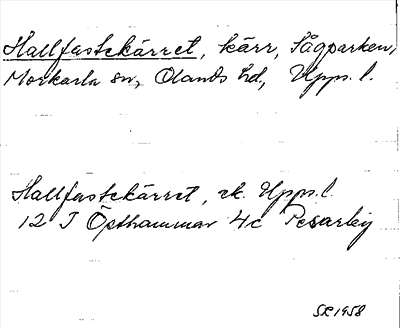 Hallfastekärret, kärr, Sågparken,
Morkarla sn, Olands hd, Upps. l.
Hallfastekärret, rk. Upps. l.
12 I Östhammar 4c Pesarby
SR 1958